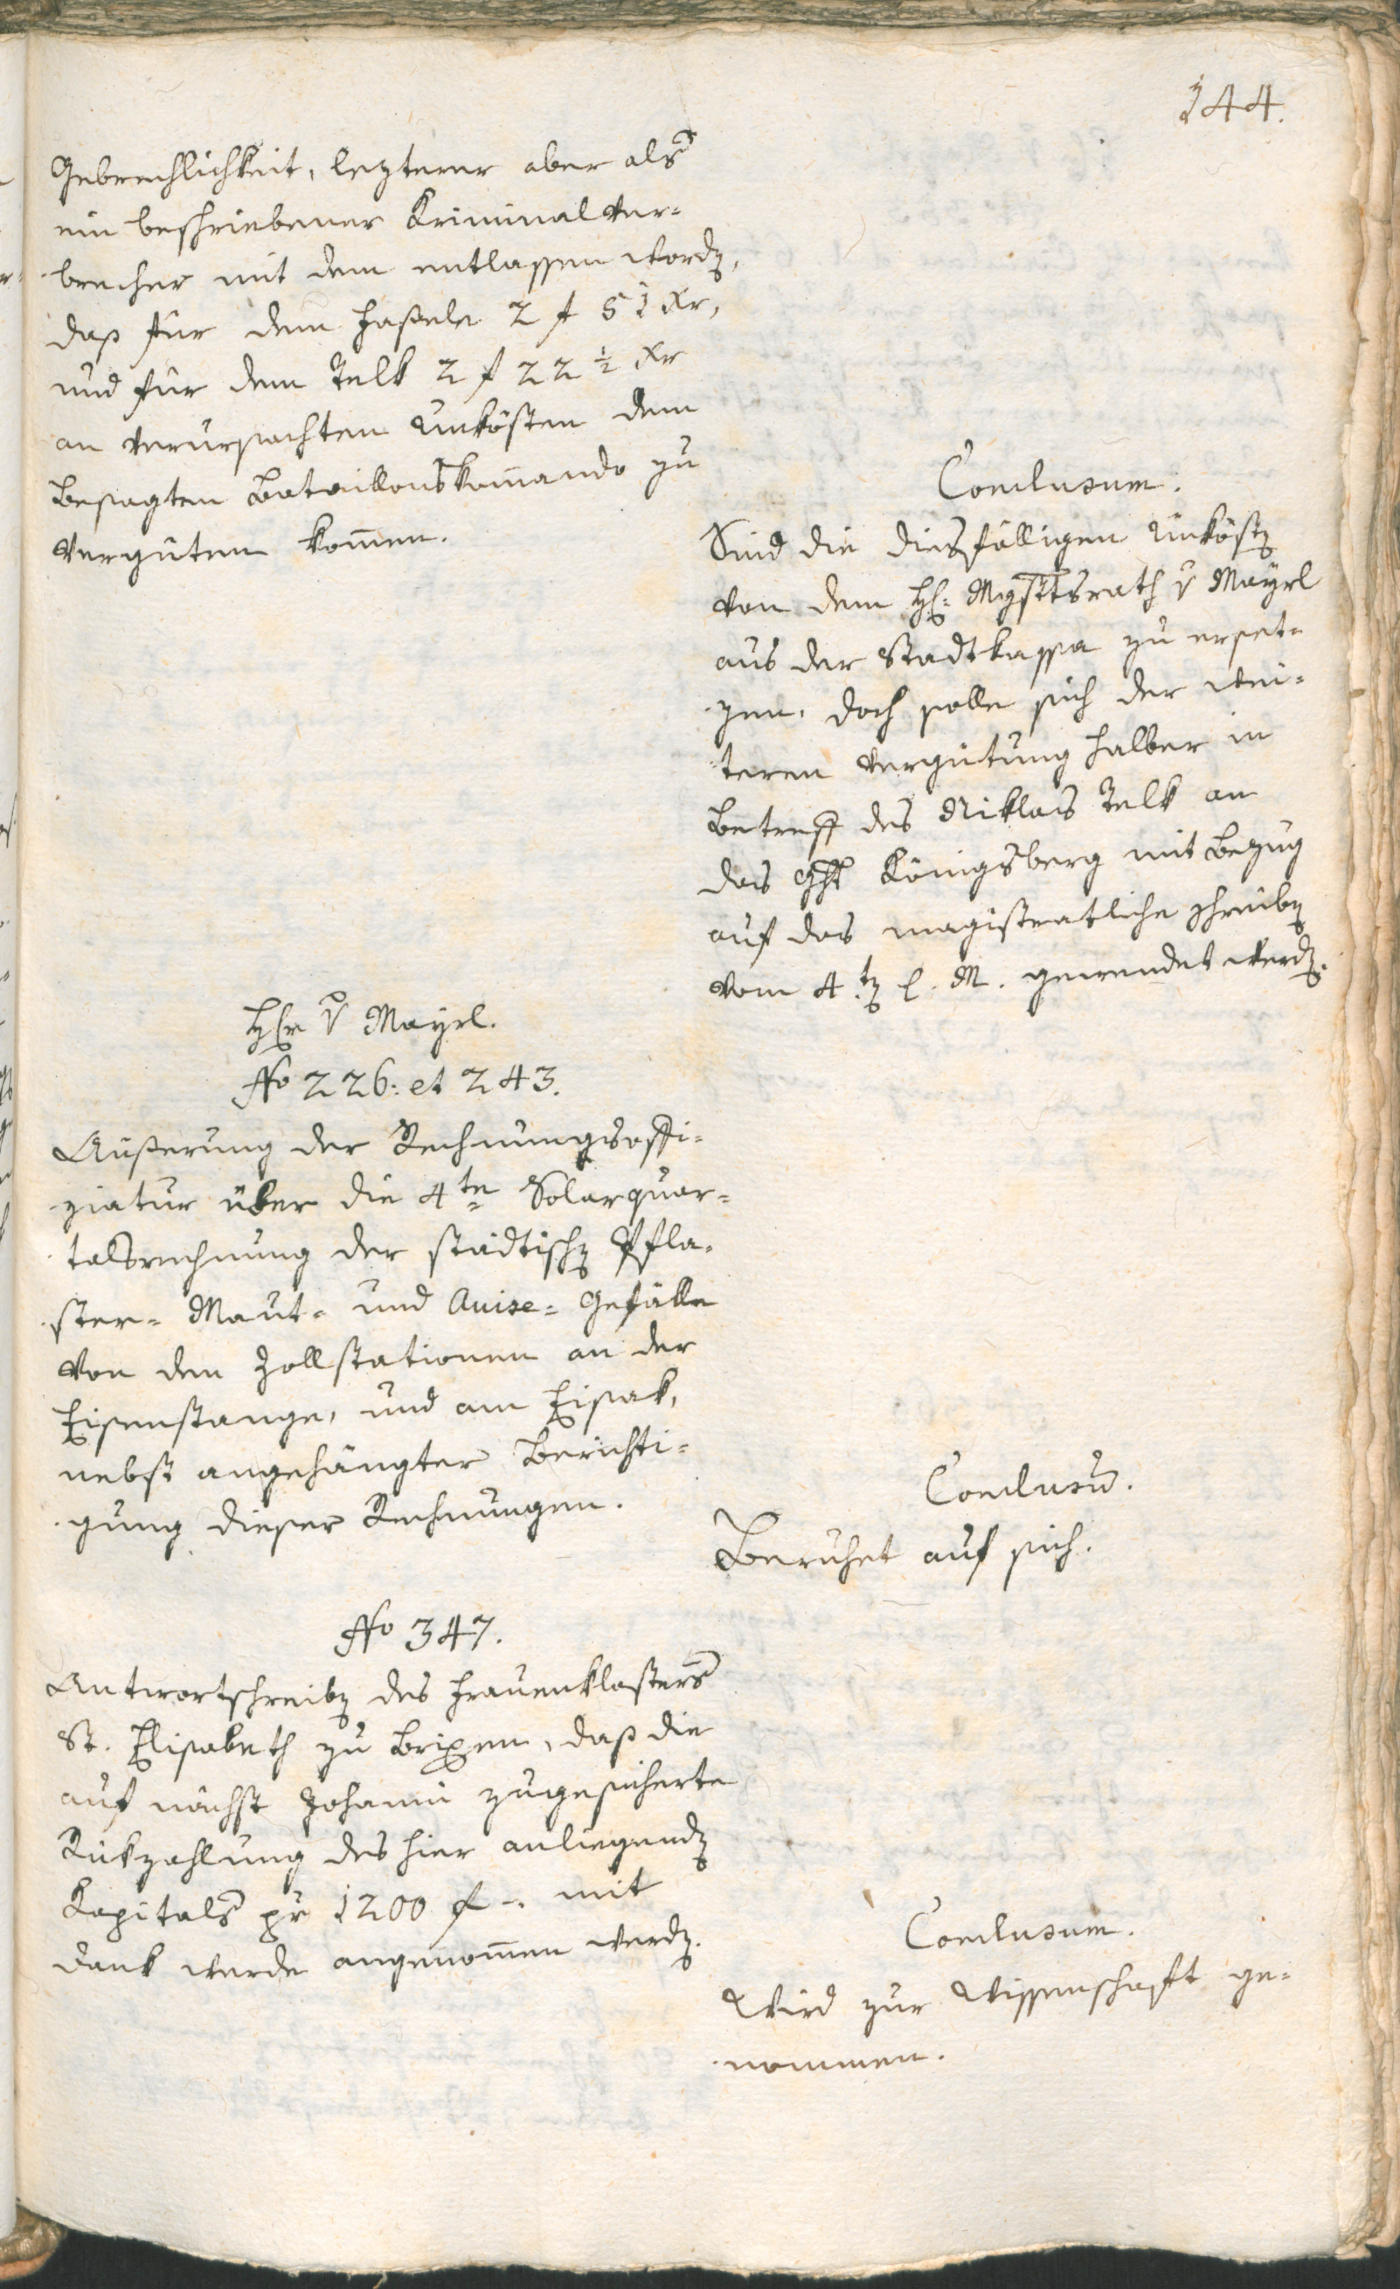 144.
Gebrechlichkeit, lezterer aber als
ein beschriebener Kriminalver-
brecher mit dem entlassen word,
daß für dem Haßele 2 f 51 xr,
und für dem Telk 2 f 22 ½ xr
an verursachten Unkösten dem
besagten Bataillonskomando zu
vergüten komen.
Conclusum.
Sind die diesfälligen Unköst
von dem H: Mgsttsrath v Mayrl
aus der Stadtkassa zu erset-
zen, doch solle sich der wei-
teren Vergütung halber in
Betreff des Niklas Telk an
das Ght Königsberg mit Bezug
auf das magistratliche Schreib
vom 4t l. M. gewendet werd.
Hr v Mayrl.
No 226: et 243.
Äußerung der Rechnungsoffi-
ziatur über die 4te Solarquar-
talsrechnung der städtisch Pfla-
ster- Maut- und Avise- Gefälle
von den Zollstationen an der
Eisenstange, und am Eisak,
nebst angehängter Berichti-
gung dieser Rechnungen.
Conclusū.
Beruhet auf sich.
No 347.
Antwortschreib des Frauenklosters
St. Elisabeth zu Brixen, daß die
auf nächst Johanni zugesicherte
Rükzahlung des hier anliegend
Kapitals pr 1200 f -. mit
Dank werde angenomen werd.
Conclusum.
Wird zur Wissenschaft ge-
nommen.